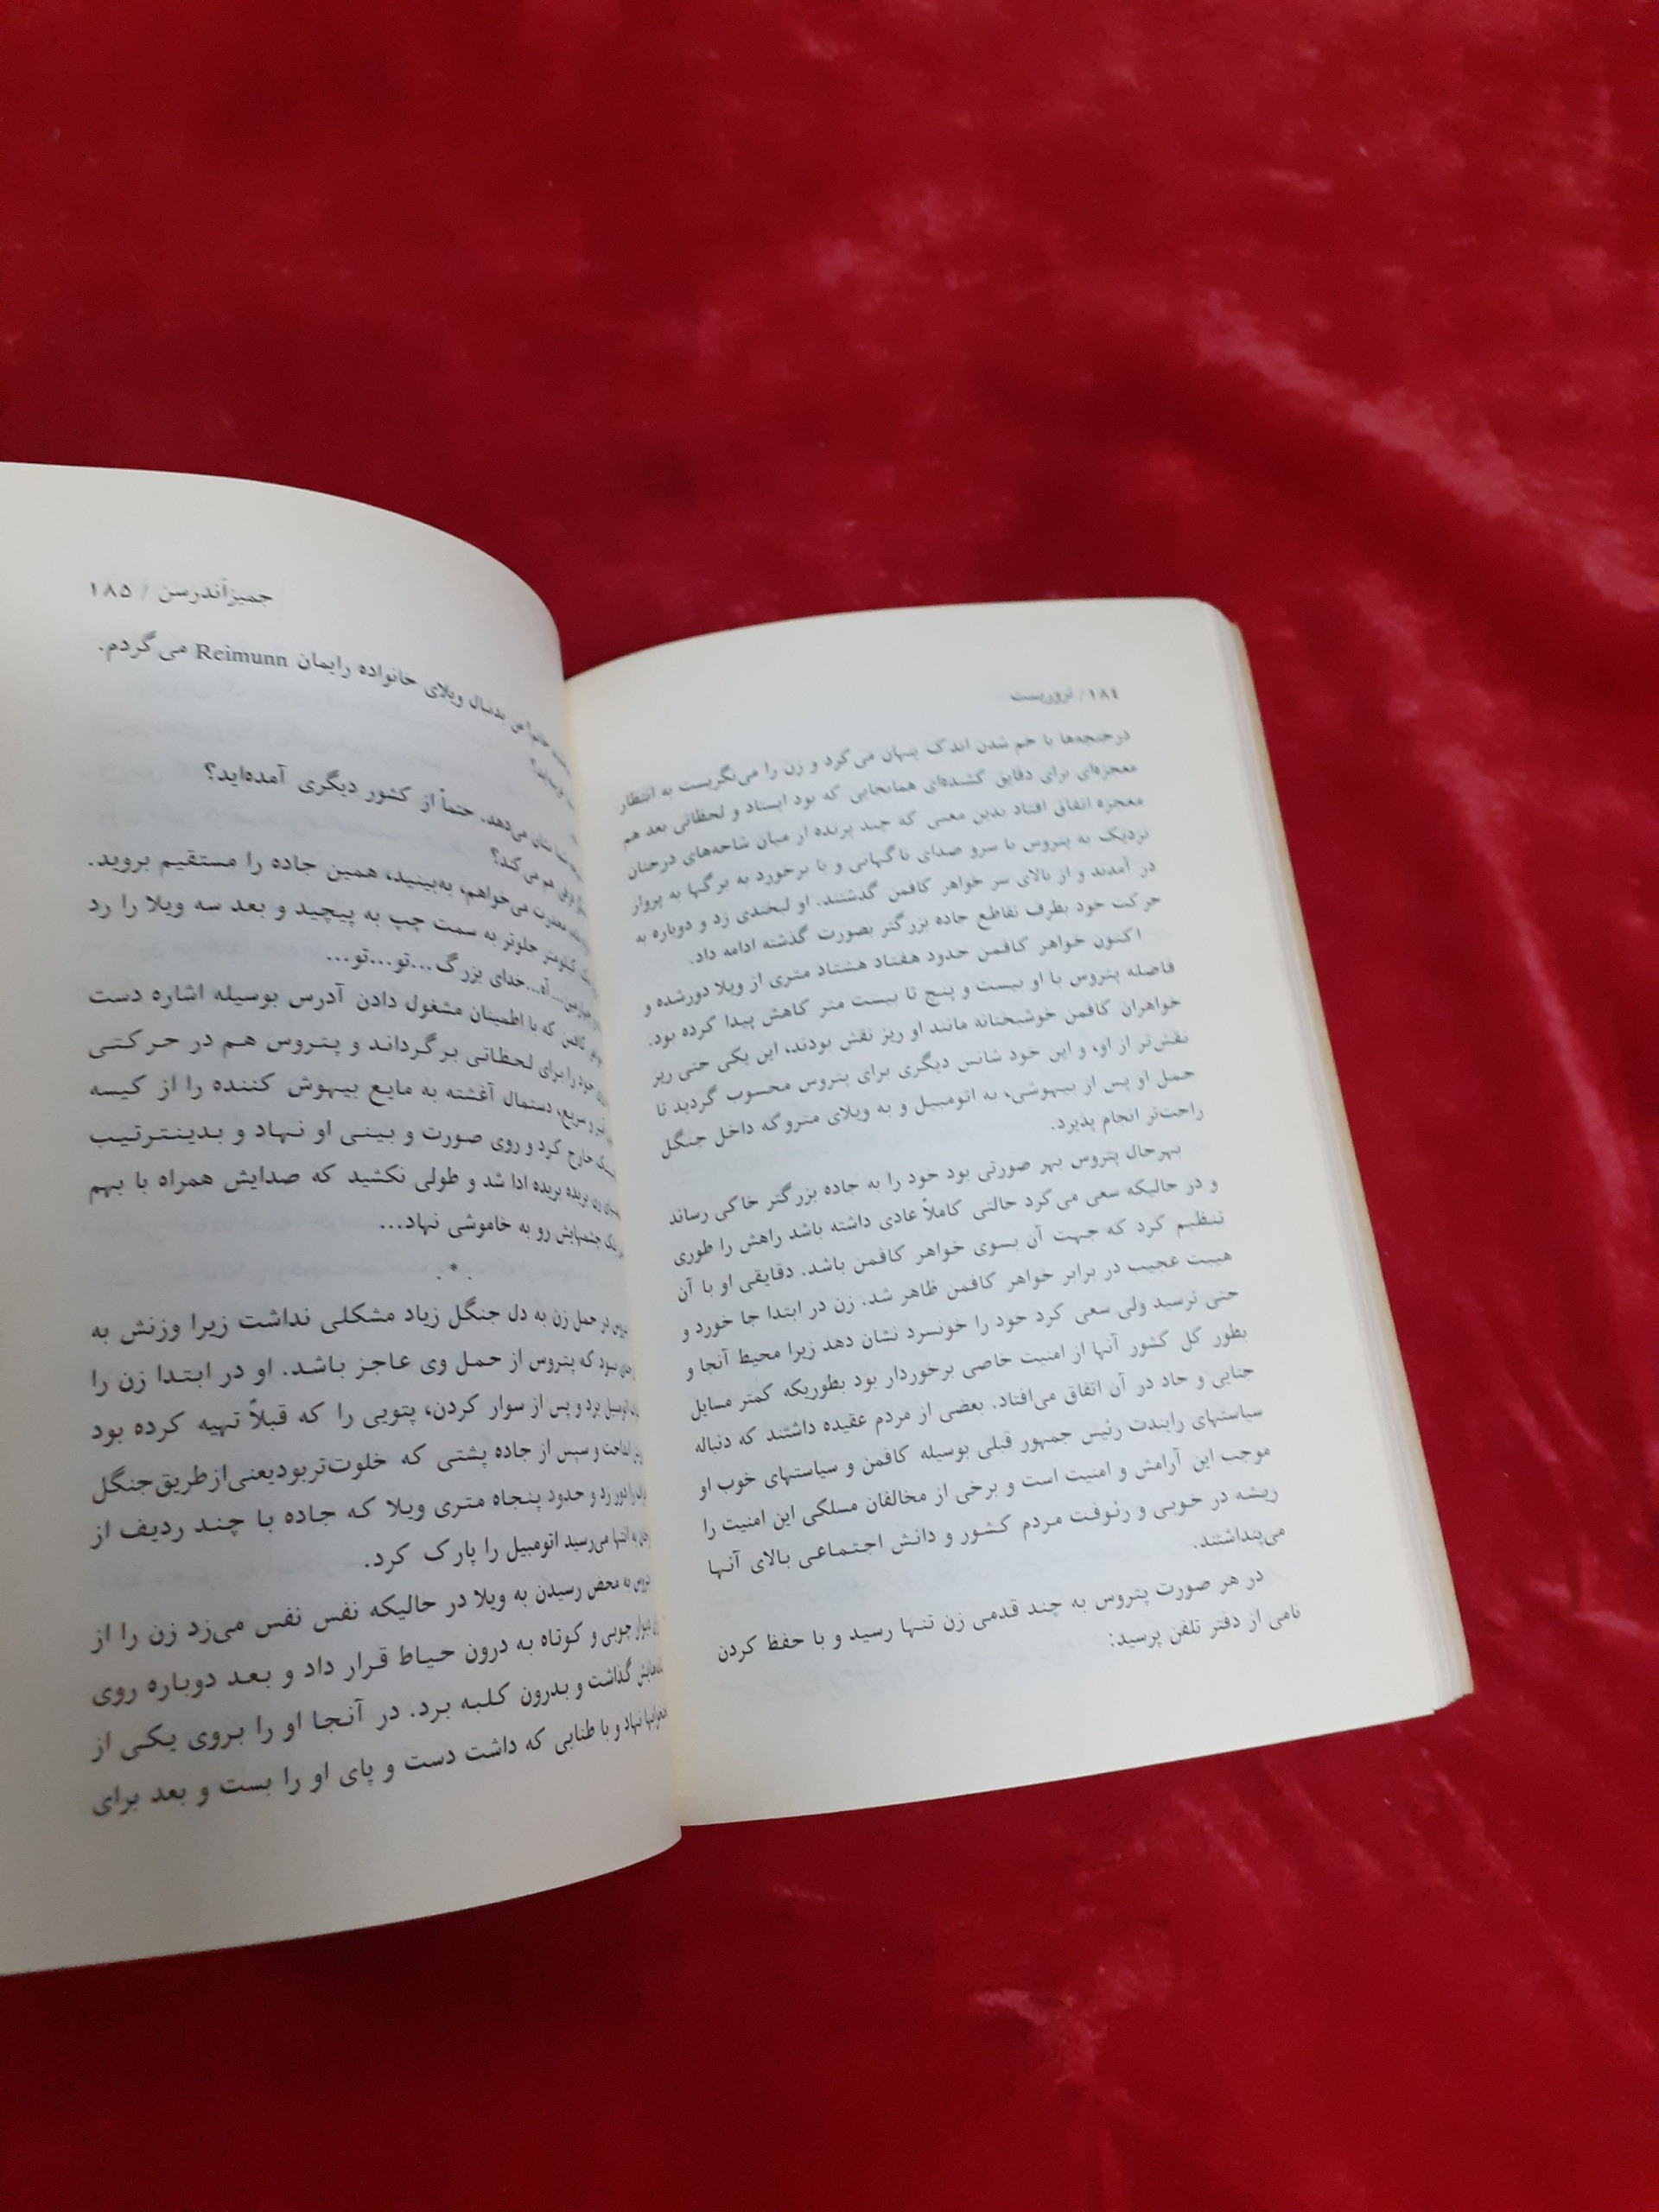 ۱۸۴ / تروریست
درختچه‌ها با خم شدن اندک پنهان می‌کرد و زن را می‌نگریست به انتظار
معجزه‌ای برای دقایق کشنده‌ای همانجایی که بود ایستاد و لحظاتی بعد هم
معجزه اتفاق افتاد بدین معنی که چند پرنده از میان شاخه‌های درختان
نزدیک به پتروس با سرو صدای ناگهانی و با برخورد به برگها به پرواز
در آمدند و از بالای سر خواهر کافمن گذشتند. او لبخندی زد و دوباره به
حرکت خود بطرف تقاطع جاده بزرگتر بصورت گذشته ادامه داد.
اکنون خواهر کافمن حدود هفتاد هشتاد متری از ویلا دورشده و
فاصله پتروس با او بیست و پنج تا بیست متر کاهش پیدا کرده بود.
خواهران کافمن خوشبختانه مانند او ریز نقش بودند، این یکی حتی ریز
نقش‌تر از او، و این خود شانس دیگری برای پتروس محسوب گردید تا
حمل او پس از بیهوشی، به اتومبیل و به ویلای متروکه داخل جنگل
راحت‌تر انجام پذیرد.
بهرحال پتروس بهر صورتی بود خود را به جاده بزرگتر خاکی رساند
و در حالیکه سعی می‌کرد حالتی کاملاً عادی داشته باشد راهش را طوری
تنظیم کرد که جهت آن بسوی خواهر کافمن باشد. دقایقی او با آن
هیبت عجیب در برابر خواهر کافمن ظاهر شد. زن در ابتدا جا خورد و
حتی ترسید ولی سعی کرد خود را خونسرد نشان دهد زیرا محیط آنجا و
بطور کل کشور آنها از امنیت خاصی برخوردار بود بطوریکه کمتر مسایل
جنایی و حاد در آن اتفاق می‌افتاد. بعضی از مردم عقیده داشتند که دنباله
سیاستهای رایندت رئیس جمهور قبلی بوسیله کافمن و سیاستهای خوب او
موجب این آرامش و امنیت است و برخی از مخالفان مسلکی این امنیت را
ریشه در خوبی و رئوفت مردم کشور و دانش اجتماعی بالای آنها
می‌پنداشتند.
در هر صورت پتروس به چند قدمی زن تنها رسید و با حفظ کردن
نامی از دفتر تلفن پرسید:
جمیزآندرسن / ۱۸۵
بدنبال ویلای خانواده رایمان Reimunn می‌گردم.
نشان می‌دهد. حتماً از کشور دیگری آمده‌اید؟
فرقی هم می‌کند؟
معذرت می‌خواهم، به‌بینید، همین جاده را مستقیم بروید.
کیلومتر جلوتر به سمت چپ به پیچید و بعد سه ویلا را رد
آه...خدای بزرگ...تو...تو...
کافمن که با اطمینان مشغول دادن آدرس بوسیله اشاره دست
خود را برای لحظاتی برگرداند و پتروس هم در حرکتی
و سریع، دستمال آغشته به مایع بیهوش کننده را از کیسه
خارج کرد و روی صورت و بینی او نهاد و بدینترتیب
بریده بریده ادا شد و طولی نکشید که صدایش همراه با بهم
چشمهایش رو به خاموشی نهاد...
. * .
در حمل زن به دل جنگل زیاد مشکلی نداشت زیرا وزنش به
نبود که پتروس از حمل وی عاجز باشد. او در ابتدا زن را
اتومبیل برد و پس از سوار کردن، پتویی را که قبلاً تهیه کرده بود
انداخت و سپس از جاده پشتی که خلوت‌تربودیعنی‌ازطریق‌جنگل
را دور زد و حدود پنجاه متری ویلا که جاده با چند ردیف از
به انتها می‌رسید اتومبیل را پارک کرد.
به محض رسیدن به ویلا در حالیکه نفس نفس می‌زد زن را از
دیوار چوبی و کوتاه به درون حیاط قرار داد و بعد دوباره روی
گذاشت و بدرون کلبه برد. در آنجا او را بروی یکی از
نهاد و با طنابی که داشت دست و پای او را بست و بعد برای